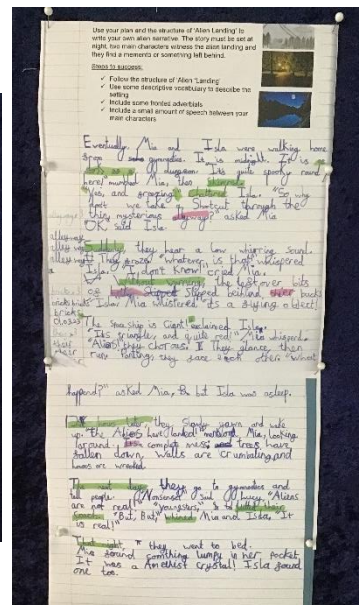 Use your plan and the structure of 'Alien Landing' to
write your own alien narrative. The story must be set at
night, two main characters witness the alien landing and
they find a mementos or something left behind.
Steps to success:
✓ Follow the structure of 'Alien 'Landing'
✓ Use some descriptive vocabulary to describe the
setting
✓ Include some fronted adverbials
✓ Include a small amount of speech between your
main characters
Eventually, Mia and Isla were walking home
from gymnastics. It is midnight. It is
Its quite spooky round
here! mumbled Mia, then
"Yes, and freezing" chattered Isla. "So why
dont we take a shortcut through the
this mysterious alyway?" asked Mia
"OK" said Isla
Suddenly, they hear a low whirring sound.
"whatever is that" whispered
Isla. "I dont know! cried Mia.
the leftover bits
of slipped behind their backs
Isla. Mia whistered "its a flying object!
The spaceship is Giant! exclaimed Isla.
"Its granuler and quite real" Mia whisperd.
"Alies" they chorus. They glance, then
run. Panting, they face each other "What
happend?" asked Mia, but Isla was asleep.
later they slowly yawn and wake
up. "the Aliens have landed!" Mia, looking
around. Its complet mess trees have
fallen down, walls are crumbaling and
homes are wrecked
The next day, they go to gymnastics and
tell people. "Nonsense" said Lucy, "Aliens
are not real!" "youngsters,"
coach. "But, But," whined Mia and Isla, "It
is real!"
That night, they went to bed.
Mia found somthing lumpy in her pocket.
It was a Amethist crystal! Isla found
one too.
alleyway
alleyway
alleyway
bricks
bricks
their